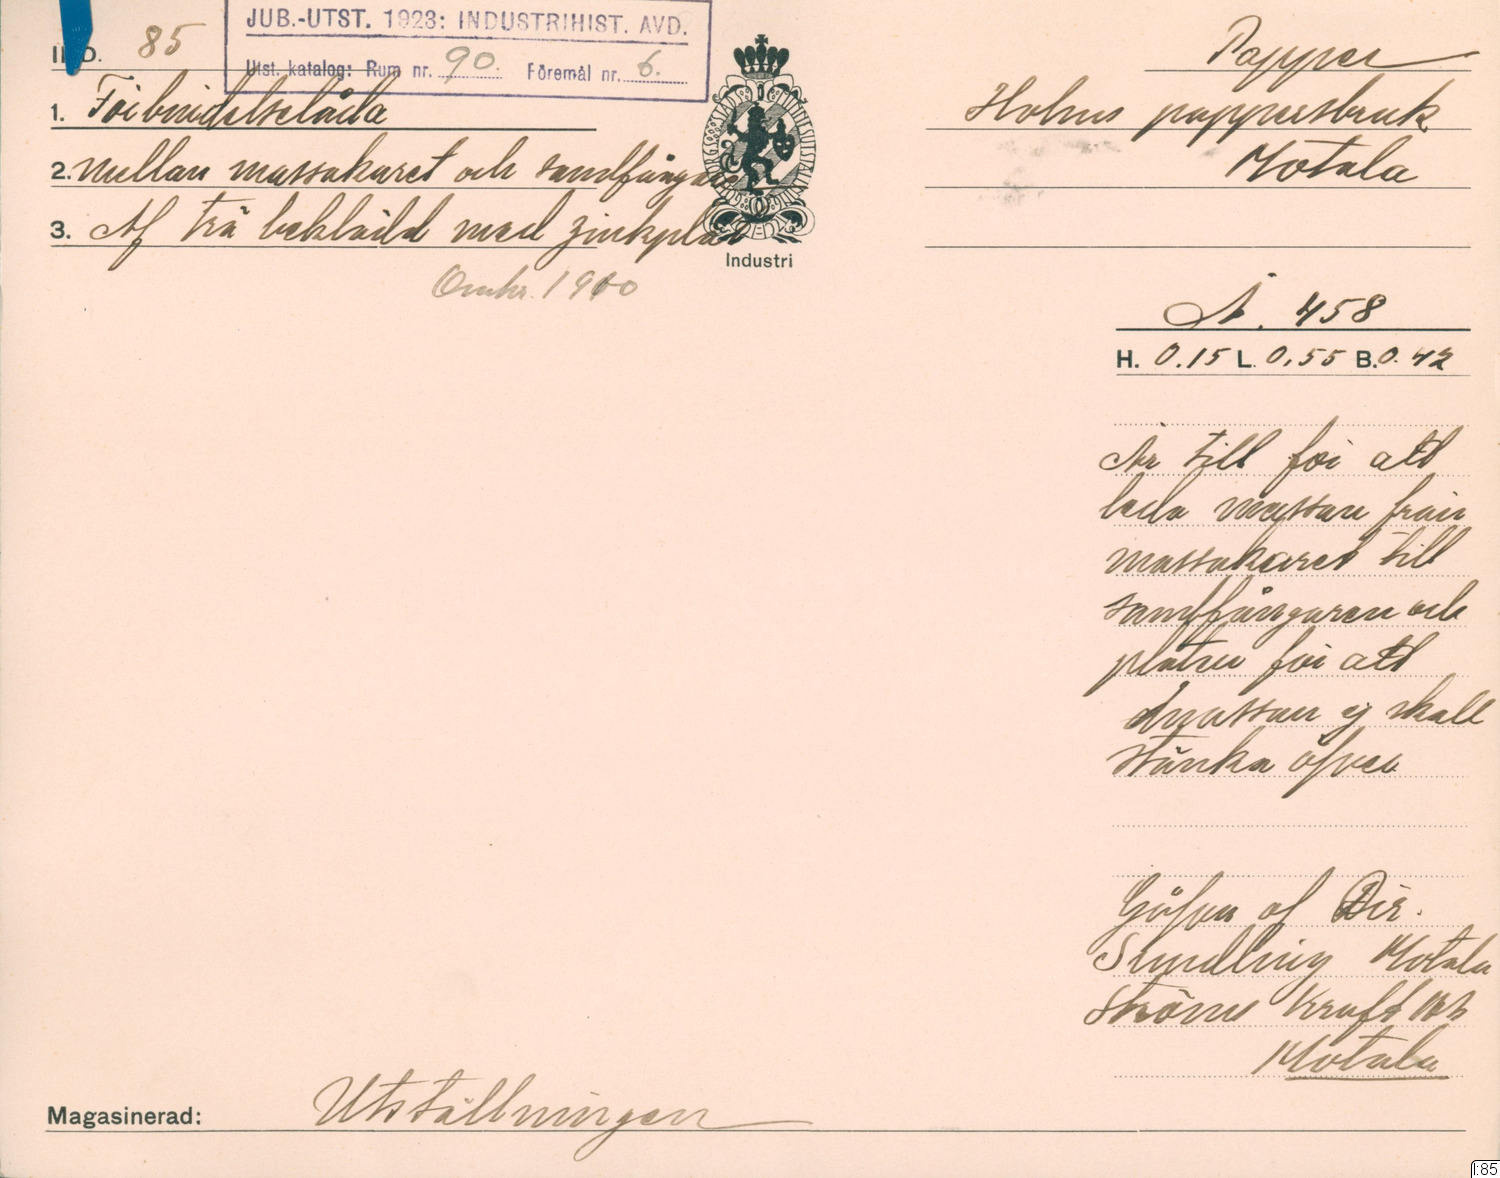 JUB.-UTST. 1923: INDUSTRIHIST. AVD.
Utst. katalog: Rum nr. 90. Föremål nr. 6.
IND. 85
1. Förbindelselåda
2. mellan massakaret och sandfångare
3. Af trä beklädd med zinkplåt
Omkr. 1900
Industri
Papper
Holms pappersbruk
Motala
N. 458
H. 0.15 L. 0,55 B. 0.42
Är till för att
leda massan från
massakaret till
sandfångaren och
platen för att
massan ej skall
stänka öfver
Gåfva af Dir.
Sundling Motala
Ströms Kraft
Motala
Magasinerad: Utställningen
I:85